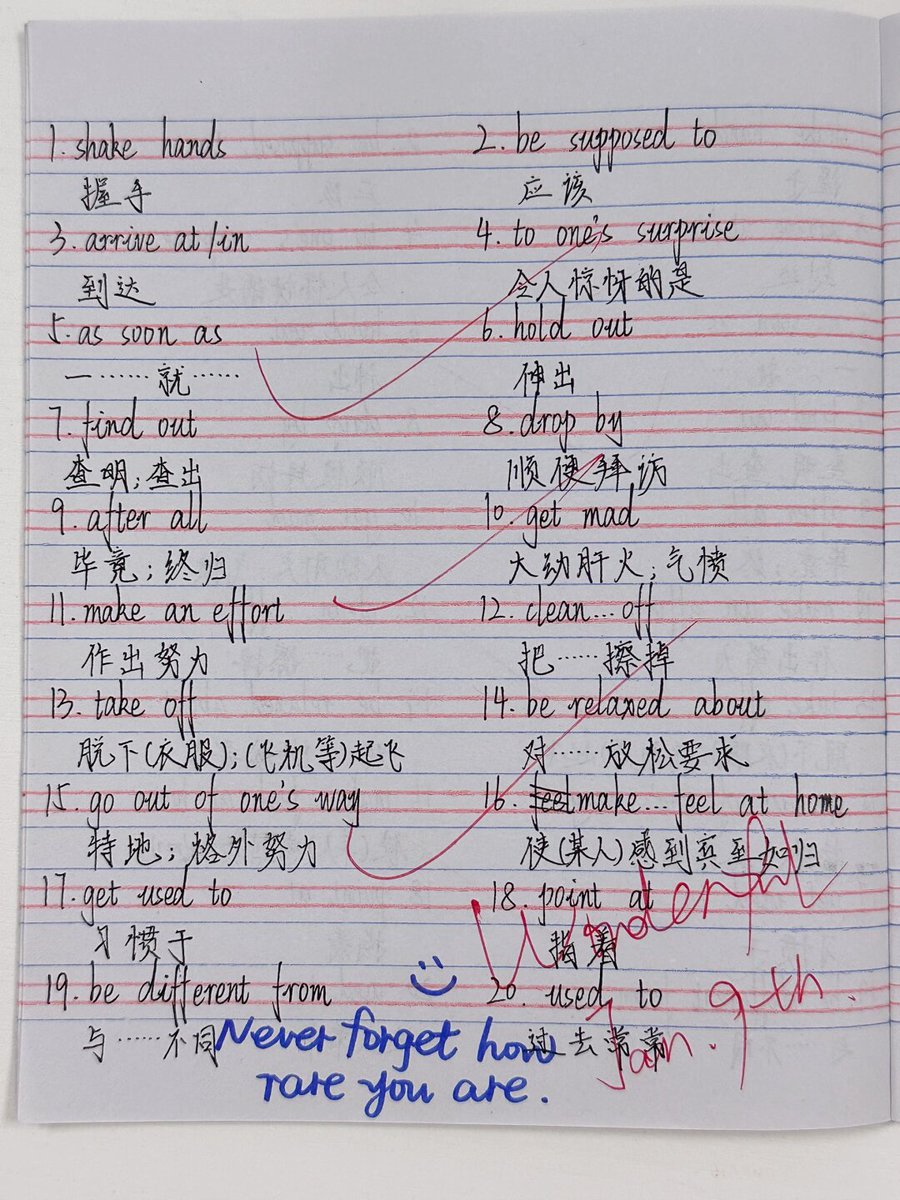 1. shake hands 2. be supposed to
握手 应该
3. arrive at/in 4. to one's surprise
到达 令人惊讶的是
5. as soon as 6. hold out
一……就…… 伸出
7. find out 8. drop by
查明;查出 顺便拜访
9. after all 10. get mad
毕竟;终归 大动肝火;气愤
11. make an effort 12. clean...off
作出努力 把……擦掉
13. take off 14. be relaxed about
脱下(衣服);(飞机等)起飞 对……放松要求
15. go out of one's way 16. feel make...feel at home
特地;格外努力 使(某人)感到宾至如归
17. get used to 18. point at
习惯于 指着
Wonderful
19. be different from 20. used to
与……不同 过去常常
Jan. 9th.
Never forget how
rare you are.